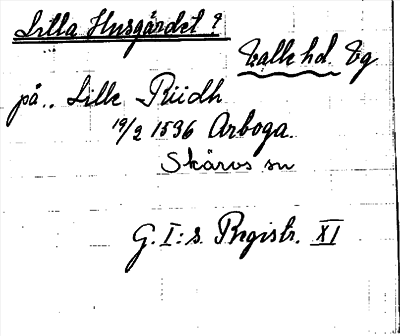 Lilla Husgärdet?
Valle hd. Vg
på.. Lille Riidh
19/2 1536 Arboga.
Skärvs sn
G. I:s. Registr. XI